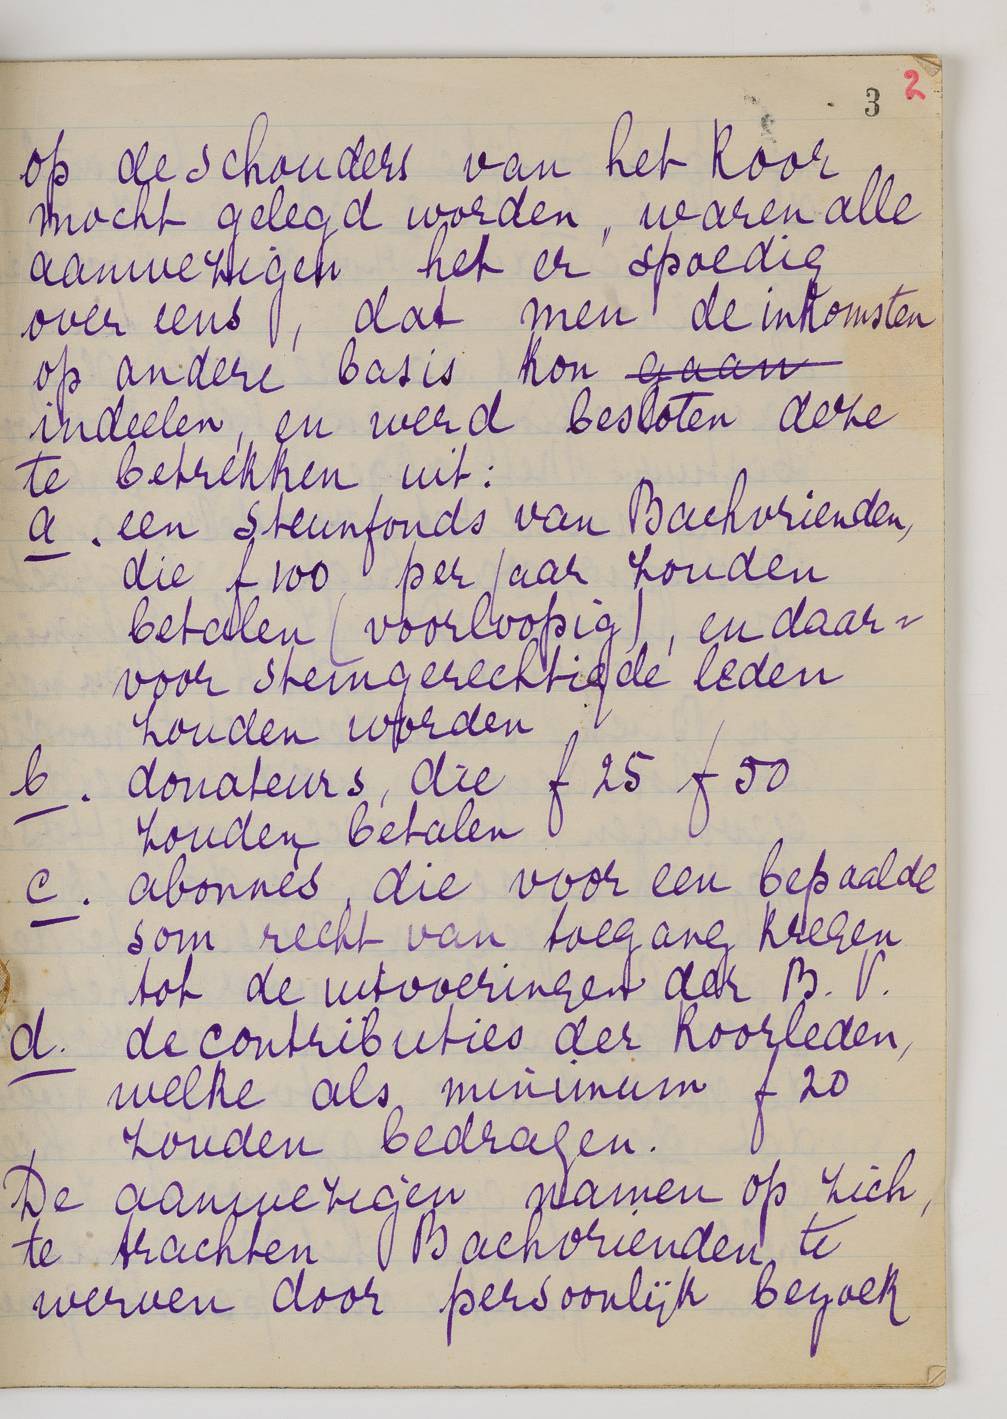 3 2
op de schouders van het Koor
mocht gelegd worden, waren alle
aanwezigen het er spoedig
over eens, dat men de inkomsten
op andere basis kon gaan
indeelen, en werd besloten deze
te betrekken uit:
a. een steunfonds van Bachvrienden,
die f 100 per jaar zouden
betalen (voorloopig), en daar=
voor stemgerechtigde leden
zouden worden
b. donateurs, die f 25 f 50
zouden betalen
c. abonnés, die voor een bepaalde
som recht van toegang kregen
tot de uitvoeringen der B. V.
d. de contributies der Koorleden,
welke als minimum f 20
zouden bedragen.
De aanwezigen namen op zich,
te trachten Bachvrienden te
werven door persoonlijk bezoek